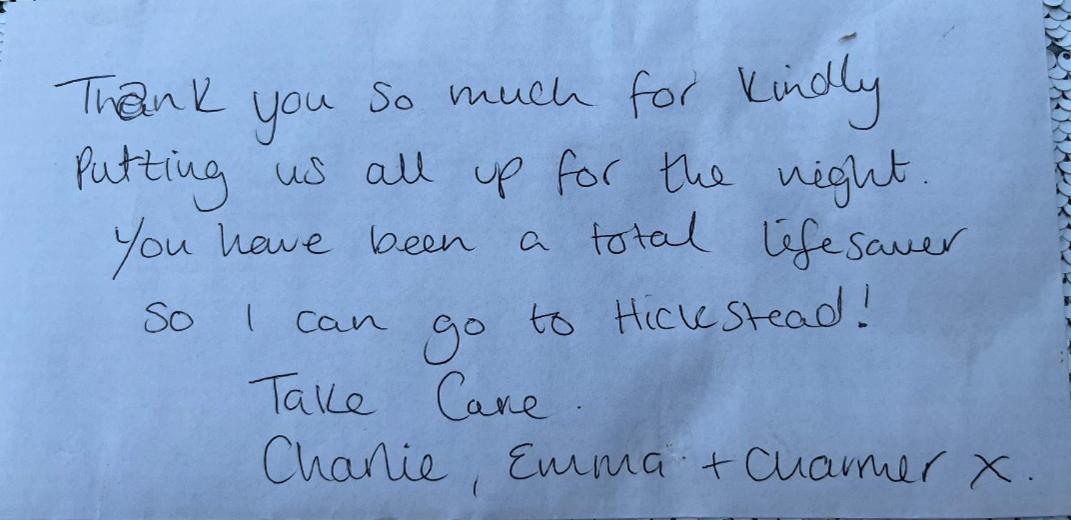 Thank you so much for kindly
Putting us all up for the night.
You have been a total lifesaver
so I can go to Hickstead!
Take Care.
Charlie, Emma + Charmer x.